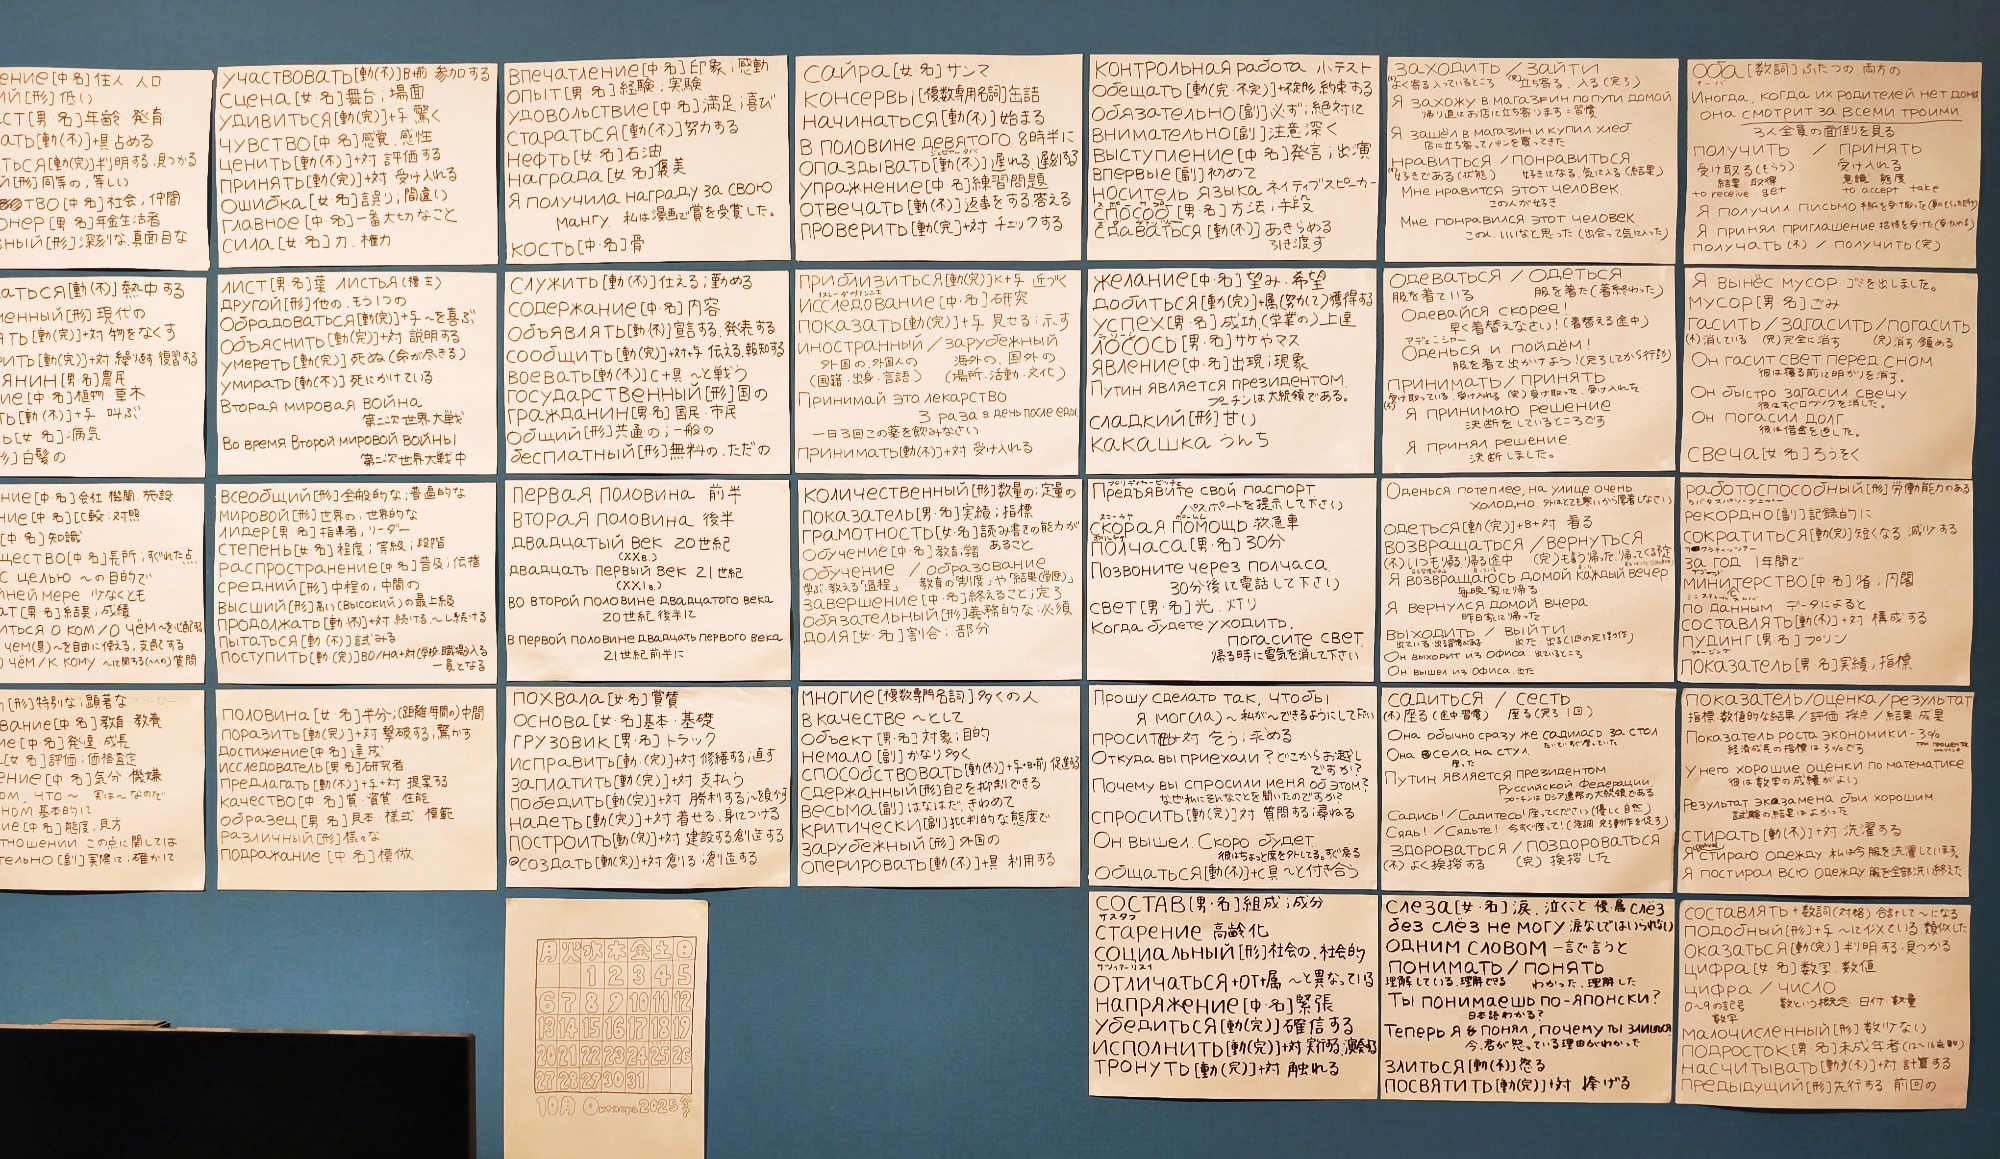 ение[中・名]住人 人口
ий[形]低い
ст[男・名]年齢 発育
ать[動(不)]+具占める
ться[動(完)]判明する,見つかる
й[形]同等の,等しい
тво[中・名]社会,仲間
онер[男・名]年金生活者
ный[形]深刻な.真面目な
участвовать[動(不)]в+前 参加する
сцена[女・名]舞台;場面
удивиться[動(完)]+与 驚く
чувство[中・名]感覚.感性
ценить[動(不)]+対 評価する
принять[動(完)]+対 受け入れる
ошибка[女・名]誤り;間違い
главное[中・名]一番大切なこと
сила[女・名]力.権力
впечатление[中・名]印象;感動
опыт[男・名]経験;実験
удовольствие[中・名]満足;喜び
стараться[動(不)]努力する
нефть[女・名]石油
награда[女・名]褒美
Я получила награду за свою
мангу. 私は漫画で賞を受賞した。
кость[中・名]骨
сайра[女・名]サンマ
консервы[複数専用名詞]缶詰
начинаться[動(不)]始まる
в половине девятого 8時半に
опаздывать[動(不)]遅れる,遅刻する
упражнение[中・名]練習問題
отвечать[動(不)]返事をする答える
проверить[動(完)]+対 チェックする
контрольная работа 小テスト
обещать[動(完・不完)]+不定形 約束する
обязательно[副]必ず;絶対に
внимательно[副]注意深く
выступление[中・名]発言;出演
впервые[副]初めて
носитель языка ネイティブスピーカー
способ[男・名]方法;手段
сдаваться[動(不)]あきらめる
引き渡す
заходить / зайти
よく寄る入っているところ 立ち寄る.入る(完了)
Я захожу в магазин по пути домой
帰り道にお店に立ち寄ります=習慣
Я зашёл в магазин и купил хлеб
店に立ち寄ってパンを買ってきた
нравиться / понравиться
好きである(状態) 好きになる.気に入る(結果)
Мне нравится этот человек.
この人が好き
Мне понравился этот человек
この人.いいなと思った(出会って気に入った)
оба [数詞]ふたつの.両方の
Иногда, когда их родителей нет дома
она смотрит за всеми троими
3人全員の面倒を見る
получить / принять
受け取る(もらう) 受け入れる
結果 取得 意識 態度
to receive get to accept take
Я получил письмо
Я принял приглашение
получать(不) / получить(完)
аться[動(不)]熱中する
менный[形]現代の
ять[動(完)]+対 物をなくす
рить[動(完)]+対 繰り返す,復習する
янин[男・名]農民
ие[中・名]植物・草木
ть[動(不)]+与 叫ぶ
ь[女・名]病気
[形]白髪の
лист[男・名]葉 листья(複主)
другой[形]他の.もう1つの
обрадоваться[動(完)]+与 ~を喜ぶ
объяснить[動(完)]+対 説明する
умереть[動(完)]死ぬ(命が尽きる)
умирать[動(不)]死にかけている
Вторая мировая война
第二次世界大戦
Во время Второй мировой войны
第二次世界大戦中
служить[動(不)]仕える;勤める
содержание[中・名]内容
объявлять[動(不)]宣言する.発表する
сообщить[動(完)]+対+与 伝える.報知する
воевать[動(不)]с+具 ~と戦う
государственный[形]国の
гражданин[男・名]国民・市民
общий[形]共通の;一般の
бесплатный[形]無料の.ただの
приблизиться[動(完)]к+与 近づく
исследование[中・名]研究
показать[動(完)]+与 見せる;示す
иностранный / зарубежный
外国の.外国人の 海外の.国外の
(国籍・出身・言語) (場所・活動・文化)
Принимай это лекарство
3 раза в день после еды
一日3回この薬を飲みなさい
принимать[動(不)]+対 受け入れる
желание[中・名]望み.希望
добиться[動(完)]+属(努力して)獲得する
успех[男・名]成功.(学業の)上達
лосось[男・名]サケやマス
явление[中・名]出現;現象
Путин является президентом.
プーチンは大統領である。
сладкий[形]甘い
какашка うんち
одеваться / одеться
服を着ている 服を着た(着終わった)
Одевайся скорее!
早く着替えなさい!(着替える途中)
Оденься и пойдём!
服を着て出かけよう!(完了してから行動)
принимать / принять
受け取っている.受け入れる (完)受け取った.受け入れた
Я принимаю решение
決断をしているところです
Я принял решение.
決断しました。
Я вынёс мусор ゴミを出しました。
мусор[男・名]ごみ
гасить/загасить/погасить
(不)消している (完)完全に消す (完)消す 鎮める
Он гасит свет перед сном
彼は寝る前に明かりを消す。
Он быстро загасил свечу
彼はすぐロウソクを消した。
Он погасил долг
彼は借金を返した。
свеча[女・名]ろうそく
ние[中・名]会社・機関.施設
ние[中・名]比較・対照
[中・名]知識
щество[中・名]長所;すぐれた点
с целью ~の目的で
йней мере 少なくとも
ат[男・名]結果;成績
иться о ком/о чём~を心配する
чем(具)~を自由に使える,支配する
чём/к кому ~に関する(~への)質問
всеобщий[形]全般的な;普遍的な
мировой[形]世界の;世界的な
лидер[男・名]指導者;リーダー
степень[女・名]程度;等級;段階
распространение[中・名]普及;伝播
средний[形]中程の.中間の
высший[形]高い(высокий)の最上級
продолжать[動(不)]+対 続ける.~し続ける
пытаться[動(不)]試みる
поступить[動(完)]во/на+対(学校・職場)入る
一員となる
первая половина 前半
вторая половина 後半
двадцатый век 20世紀
(XXв.)
двадцать первый век 21世紀
(XXIв.)
во второй половине двадцатого века
20世紀後半に
в первой половине двадцать первого века
21世紀前半に
количественный[形]数量の;定量の
показатель[男・名]実績;指標
грамотность[女・名]読み書きの能力が
обучение[中・名]教育,学習 あること
обучение / образование
学ぶ・教える「過程」 教育の「制度」や「結果(学歴)」
завершение[中・名]終えること;完了
обязательный[形]義務的な.必須
доля[女・名]割合;部分
Предъявите свой паспорт
パスポートを提示して下さい
скорая помощь 救急車
полчаса[男・名]30分
Позвоните через полчаса.
30分後に電話して下さい
свет[男・名]光.灯り
Когда будете уходить.
погасите свет.
帰る時に電気を消して下さい
Оденься потеплее, на улице очень
холодно.
одеться[動(完)]+в+対 着る
возвращаться/вернуться
Я возвращаюсь домой каждый вечер
毎晩家に帰る
Я вернулся домой вчера
昨日家に帰った
выходить / выйти
Он выхорит из офиса 出ているところ
Он вышел из офиса 出た
работоспособный[形]労働能力のある
рекордно[副]記録的に
сократиться[動(完)]短くなる 減少する
за год 1年間で
министерство[中・名]省;内閣
по данным データによると
составлять[動(不)]+対 構成する
пудинг[男・名]プリン
показатель[男・名]実績;指標
[形]特別な;顕著な
вание[中・名]教育 教養
ие[中・名]発達 成長
[女・名]評価;価格査定
ение[中・名]気分 機嫌
ом, что~ 実は~なのだ
ном 基本的に
ие[中・名]態度,見方
тношении この点に関しては
тельно[副]実際に;確かに
половина[女・名]半分;(距離・時間の)中間
поразить[動(完)]+対 撃破する;驚かす
достижение[中・名]達成
исследователь[男・名]研究者
предлагать[動(不)]+与+対 提案する
качество[中・名]質・資質・性能
образец[男・名]見本 様式 模範
различный[形]様々な
подражание [中・名]模倣
похвала[女・名]賞賛
основа[女・名]基本・基礎
грузовик[男・名]トラック
исправить[動・(完)]+対 修繕する;直す
заплатить[動(完)]+対 支払う
победить[動(完)]+対 勝利する;~を負かす
надеть[動(完)]+対 着せる.身につける
построить[動(完)]+対 建設する,創造する
создать[動(完)]+対 創る;創造する
многие[複数専門名詞]多くの人
в качестве ~として
объект[男・名]対象;目的
немало[副]かなり多く
способствовать[動(不)]+与+в+前 促進する
сдержанный[形]自己を抑制できる
весьма[副]はなはだ.きわめて
критически[副]批判的な態度で
зарубежный[形]外国の
оперировать[動(不)]+具 利用する
Прошу сделать так, чтобы
я мог(ла)~ 私が~できるようにして下さい
просить+対 乞う;求める
Откуда вы приехали?どこからお越し
ですか?
Почему вы спросили меня об этом?
なぜ私にそんなことを聞いたのですか?
спросить[動(完)]対 質問する;尋ねる
Он вышел. Скоро будет.
彼はちょっと席を外してる。すぐ戻る
общаться[動(不)]+с具 ~と付き合う
садиться / сесть
(不)座る(途中・習慣) 座る(完了 1回)
Она обычно сразу же садилась за стол
Она села на стул.
座った
Путин является президентом
Русcийской Федерации
プーチンはロシア連邦の大統領である
Садись!/Садитесь!座ってください(優しく自然)
Сядь!/Сядьте! 今すぐ座って!(強調 完了動作を促す)
здороваться / поздороваться
(不)よく挨拶する (完)挨拶した
показатель/оценка/результат
指標.数値的な結果/評価 採点/結果・成果
Показатель роста экономики-3%
経済成長の指標は3%です
У него хорошие оценки по математике
彼は数学の成績がよい
Результат эказамена был хорошим.
試験の結果はよかった
стирать[動(不)]+対 洗濯する
Я стираю одежду 私は今服を洗濯しています。
Я постирал всю одежду 服を全部洗い終えた
月火水木金土日
1 2 3 4 5
6 7 8 9 10 11 12
13 14 15 16 17 18 19
20 21 22 23 24 25 26
27 28 29 30 31
10月 Октябрь 2025年
состав[男・名]組成;成分
старение 高齢化
социальный[形]社会の.社会的
отличаться+от+属 ~と異なっている
напряжение[中・名]緊張
убедиться[動(完)]確信する
исполнить[動(完)]+対 実行する.演奏する
тронуть[動(完)]+対 触れる
слеза[女・名]涙.泣くこと 複・属 слёз
без слёз не могу 涙なしではいられない
одним словом 一言で言うと
понимать/понять
理解している.理解できる わかった.理解した
Ты понимаешь по-японски?
日本語わかる?
Теперь я понял, почему ты злишься
今、君が怒っている理由がわかった
злиться[動(不)]怒る
посвятить[動(完)]+対 捧げる
составлять+数詞(対格)合計して~になる
подобный[形]+与 ~に似ている 類似した
оказаться[動(完)]判明する;見つかる
цифра[女・名]数字.数値
цифра / число
0~9の記号 数という概念・日付・数量
数字
малочисленный[形]数少ない
подросток[男・名]未成年者
насчитывать[動(不)]+対 計算する
предыдущий[形]先行する 前回の